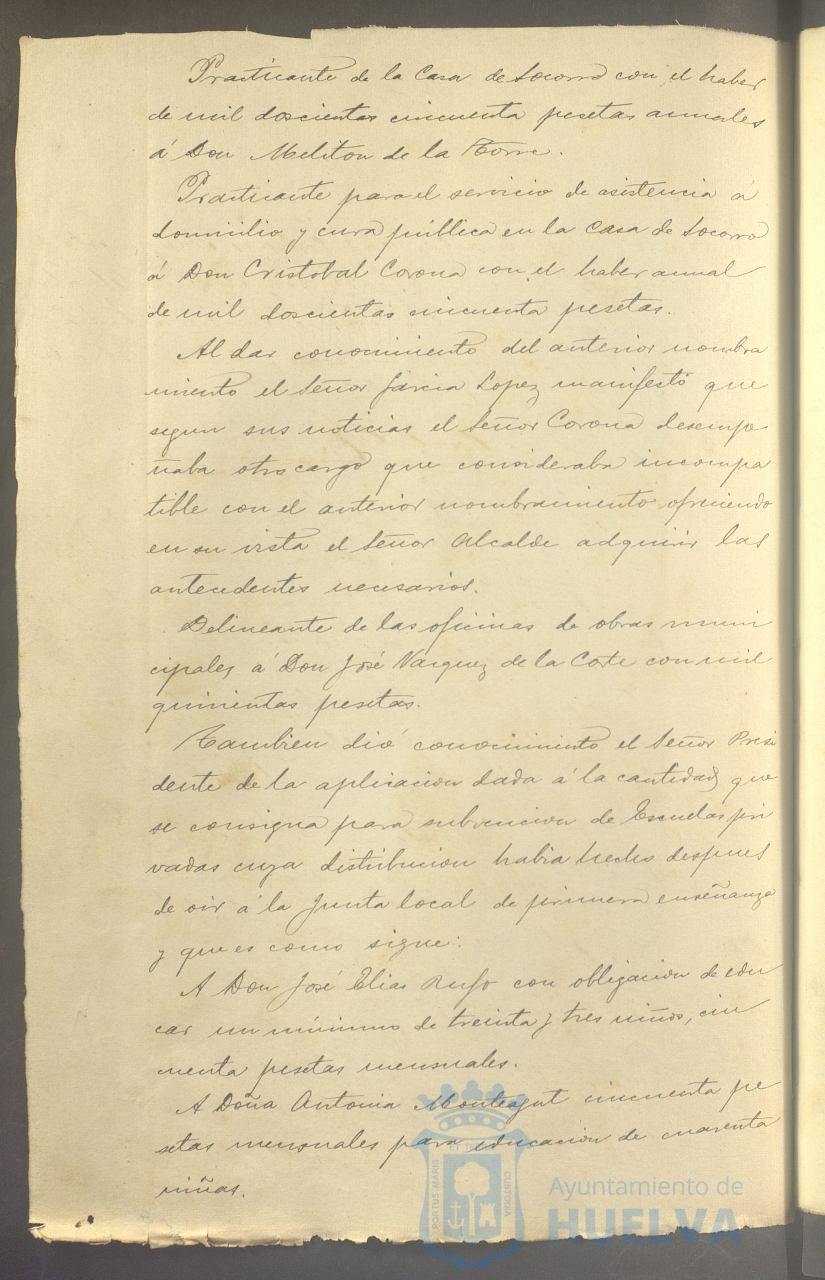 Practicante de la Casa de Socorro con el haber
de mil doscientas cincuenta pesetas anuales
á Don Meliton de la Torre.
Practicante para el servicio de asistencia á
domicilio y cura pública en la Casa de Socorro
á Don Cristobal Corona con el haber anual
de mil doscientas cincuenta pesetas.
Al dar conocimiento del anterior nombra
miento el Señor Garcia Lopez manifestó que
segun sus noticias el Señor Corona desempe
ñaba otro cargo que consideraba incompa
tible con el anterior nombramiento ofreciendo
en su vista el Señor Alcalde adquirir las
antecedentes necesarios.
Delineante de las oficinas de obras muni
cipales á Don José Vazquez de la Corte con mil
quinientas pesetas.
Tambien dió conocimiento el Señor Presi
dente de la aplicacion dada á la cantidad que
se consigna para subvencion de Escuelas pri
vadas cuya distribucion habia hecho despues
de oir á la Junta local de primera enseñanza
y que es como sigue:
A Don José Elias Rufo con obligacion de edu
car un mínimo de treinta y tres niños, cin
cuenta pesetas mensuales.
A Doña Antonia Monteagut cincuenta pe
setas mensuales para educacion de cuarenta
niñas.
PORTUS MARIS
CUSTODIA
Ayuntamiento de
HUELVA